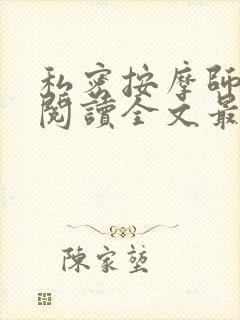 私密按摩師
閱讀全文最
陳家堃